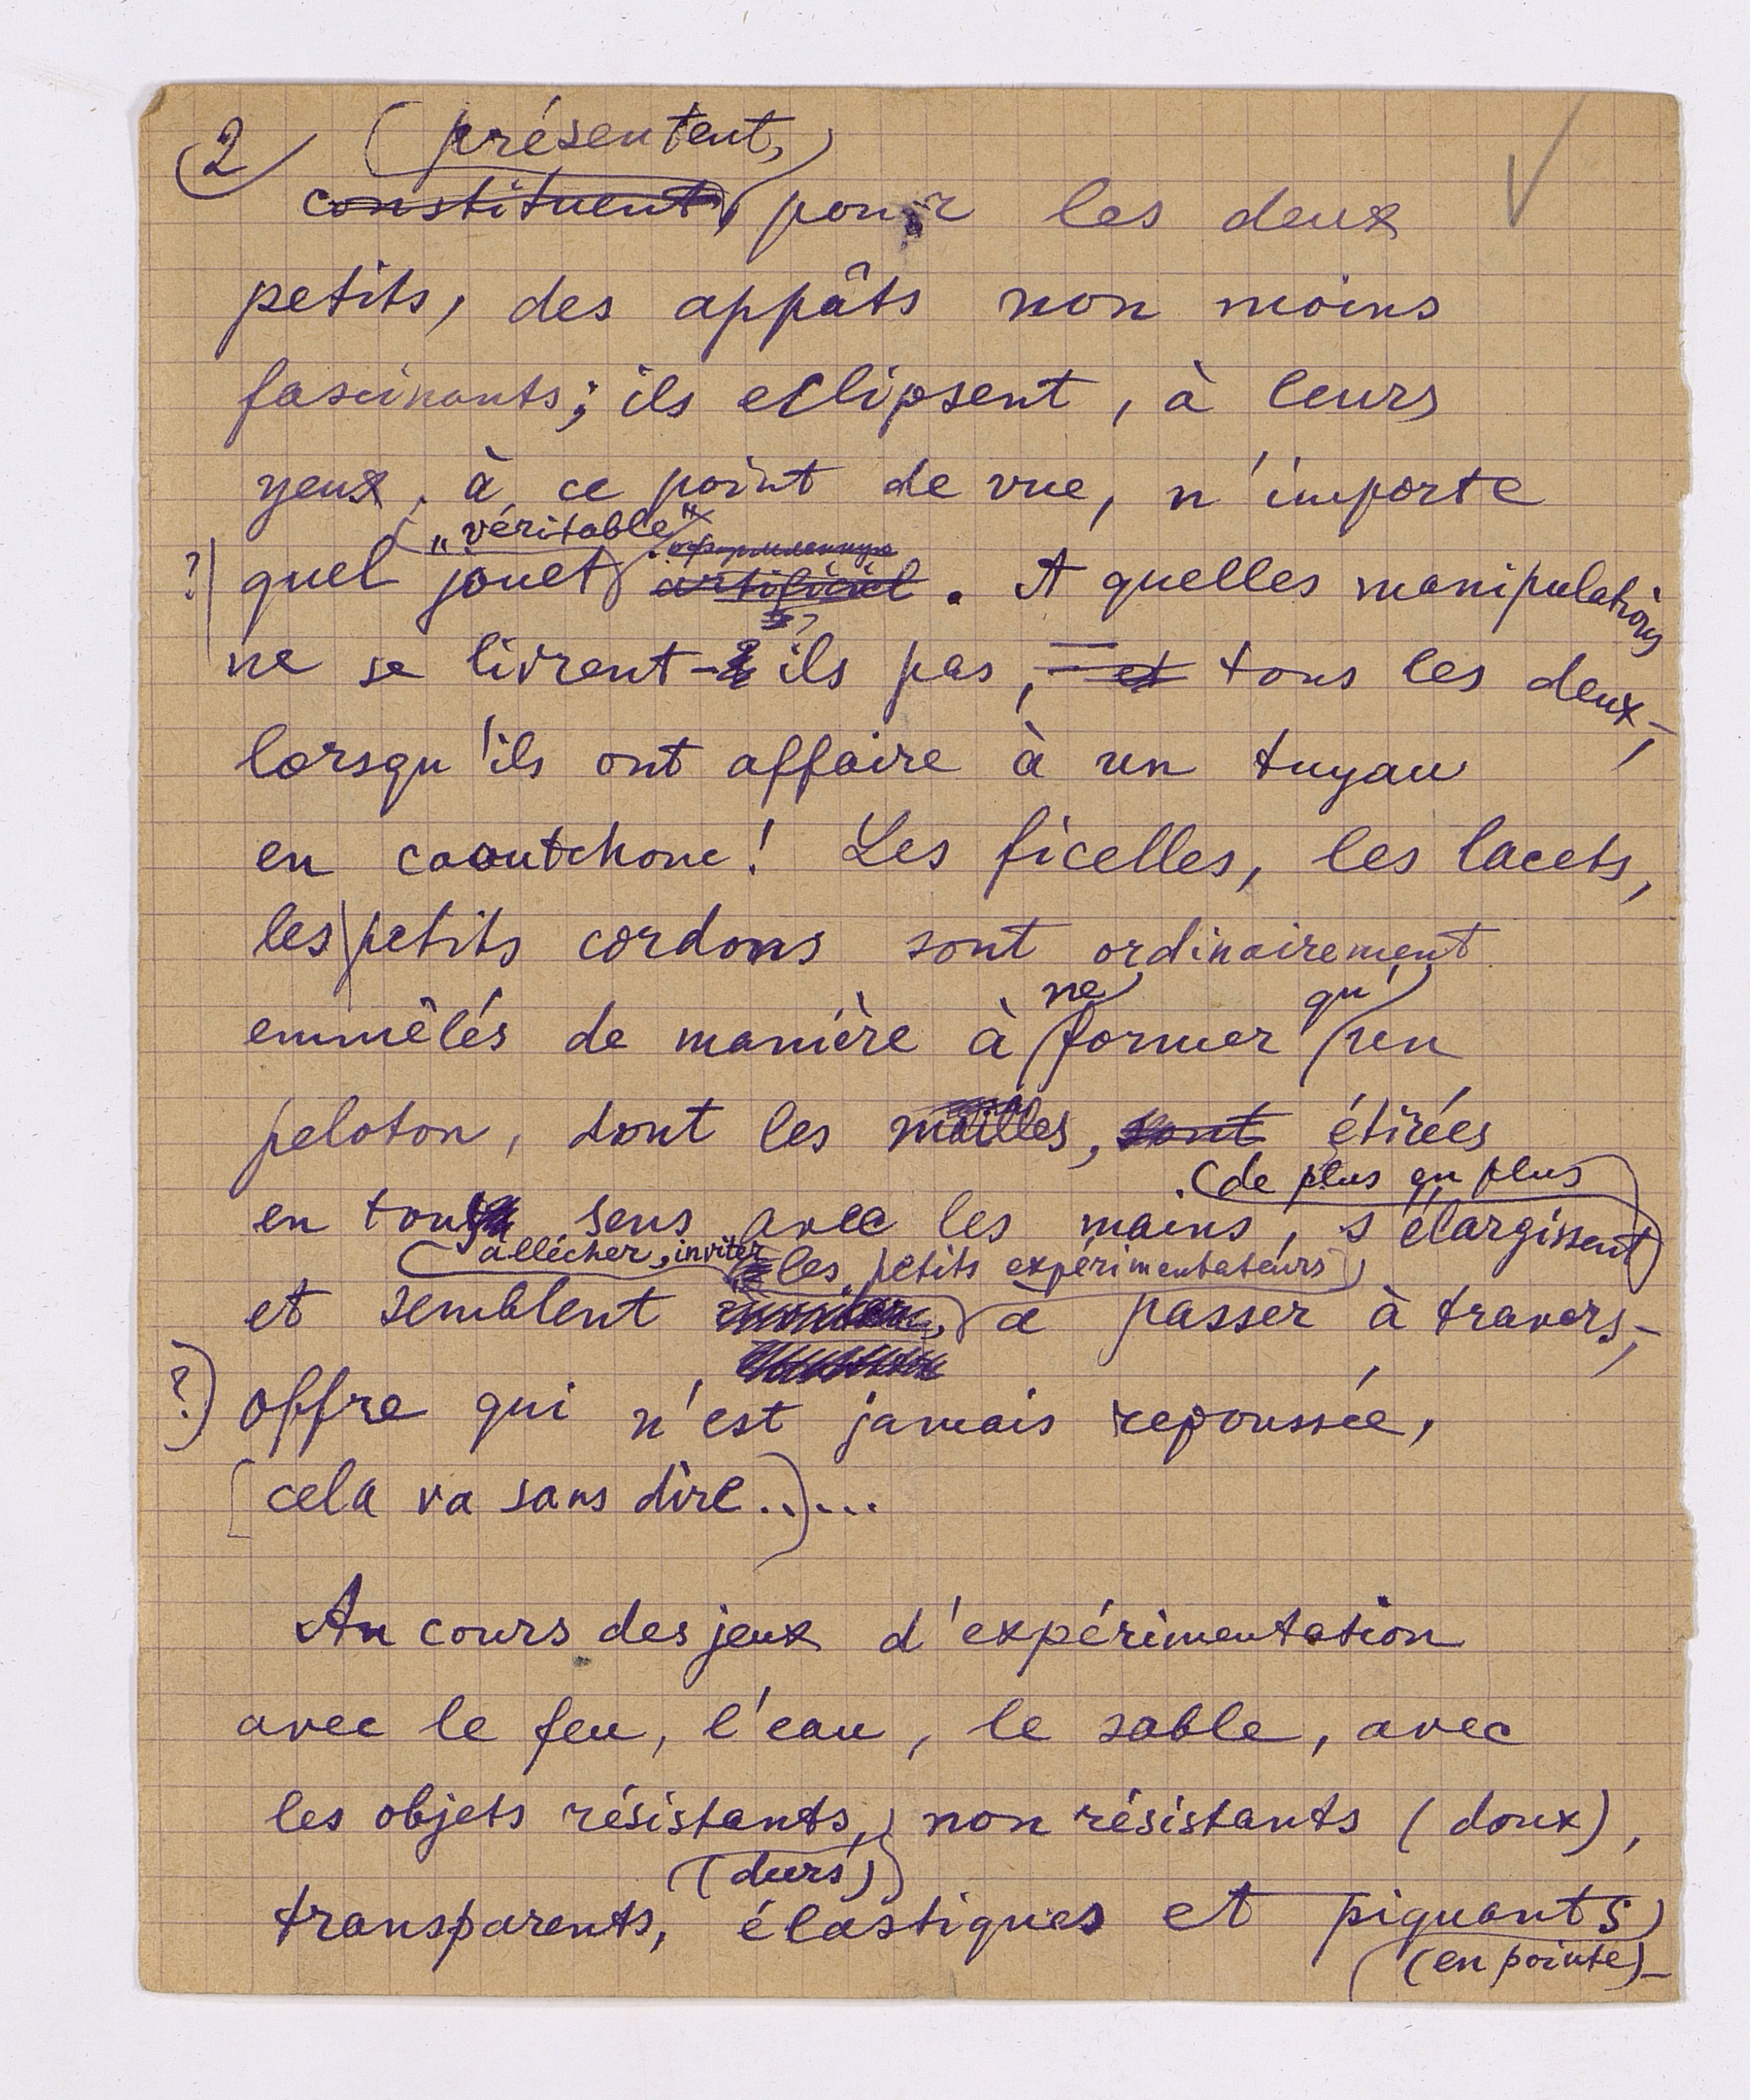 2 (présentent,)
constituent, pour les deux
petits, des appâts non moins
fascinants; ils eclipsent, à leurs
yeux, à ce point de vue, n'importe
„véritable"
?) quel jouet artificiel. A quelles manipulations
ne se livrent-ils pas, – et tous les deux,–
lorsqu'ils ont affaire à un tuyau
en caoutchouc! Les ficelles, les lacets,
les petits cordons sont ordinairement
ne qu'
emmêlés de manière à former un
peloton, dont les mailles, sont étirées
(de plus en plus
en tous sens avec les mains, s'élargissent
allécher, inviter les petits expérimentateurs
et semblent à passer à travers,–
?) offre qui n'est jamais repoussée,
(cela va sans dire..)...
Au cours des jeux d'expérimentation
avec le feu, l'eau, le sable, avec
les objets résistants, non résistants (doux),
(durs)
transparents, élastiques et piquants
(en pointe)–